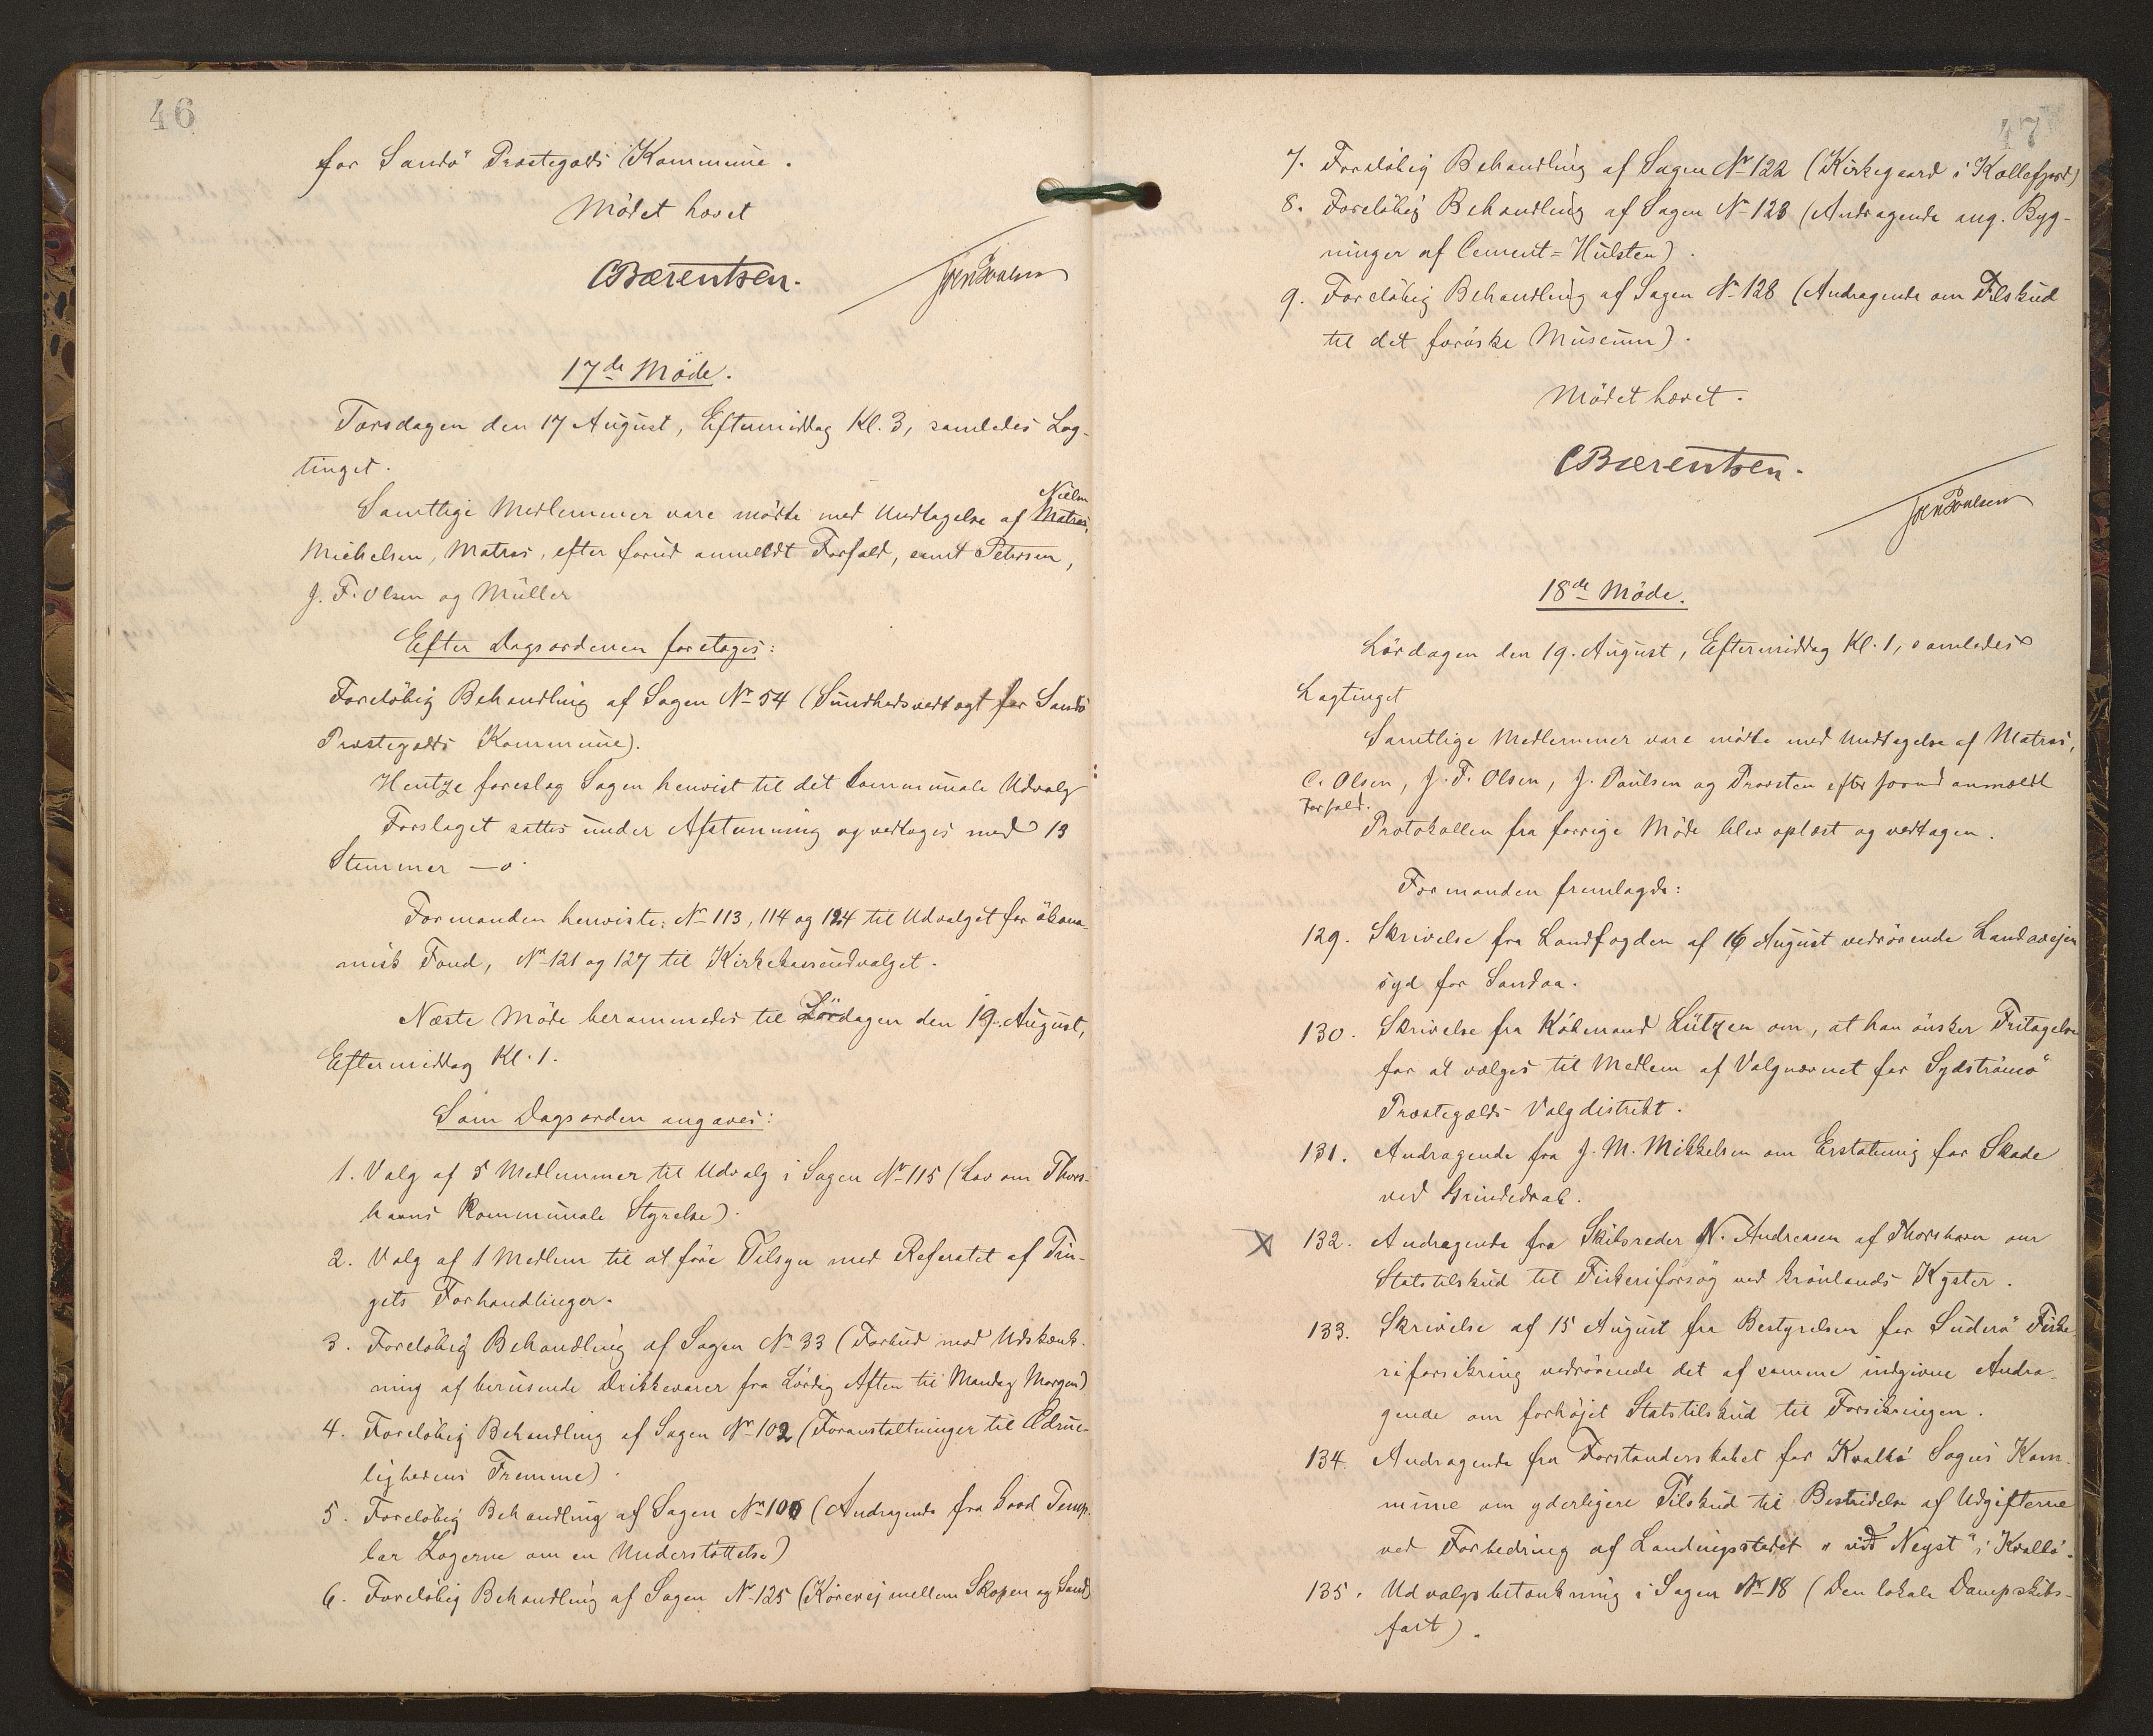 46
for Sandø Præstegælds Kommune.
Mødet hævet
CBærentsen.
JoenPoulsen
17de Møde.
Torsdagen den 17 August, Eftermiddag Kl. 3, samledes Lag-
tinget.
Nielsen
Samtlige Medlemmer vare mødte med Undtagelse af Matras,
Michelsen, Matras, efter forud anmeldt Forfald, samt Petersen,
J. F. Olsen og Müller
Efter Dagsordenen foretoges:
Foreløbig Behandling af Sagen No 54 (Sundhedsvedtægt for Sandø
Præstegælds Kommune).
Hentze foreslog Sagen henvist til det kommunale Udvalg
Forslaget sattes under Afstemning og vedtoges med 13
Stemmer — 0.
Formanden henviste: No 113, 114 og 124 til Udvalget for økono-
misk Fond, No 121 og 127 til Kirkekasseudvalget.
Næste Møde berammedes til Lørdagen den 19. August,
Eftermiddag Kl. 1.
Som Dagsorden angaves:
1. Valg af 5 Medlemmer til Udvalg i Sagen No 115 (Lov om Thors-
havns kommunale Styrelse).
2. Valg af 1 Medlem til at føre Tilsyn med Referatet af Tin-
gets Forhandlinger.
3. Foreløbig Behandling af Sagen No 33 (Forbud mod Udskænk-
ning af berusende Drikkevarer fra Lørdag Aften til Mandag Morgen)
4. Foreløbig Behandling af Sagen No 102 (Foranstaltninger til Ædrue-
lighedens Fremme).
5. Foreløbig Behandling af Sagen No 106 (Andragende fra Good Temp-
lar Logerne om en Understøttelse)
6. Foreløbig Behandling af Sagen No 125 (Kørevej mellem Skopen og Sand)
47
7. Foreløbig Behandling af Sagen No 122 (Kirkegaard i Kollefjord)
8. Foreløbig Behandling af Sagen No 123 (Andragende ang. Byg-
ninger af Cement-Hulsten).
9. Foreløbig Behandling af Sagen No 128 (Andragende om Tilskud
til det færøske Museum).
Mødet hævet.
CBærentsen.
JoenPoulsen
18de Møde.
Lørdagen den 19. August, Eftermiddag Kl. 1, samledes
Lagtinget
Samtlige Medlemmer vare mødte med Undtagelse af Matras,
C. Olsen, J. F. Olsen, J. Paulsen og Provsten efter forud anmeldt
Forfald.
Protokollen fra forrige Møde blev oplæst og vedtagen.
Formanden fremlagde:
129. Skrivelse fra Landfogden af 16 August vedrørende Landevejen
syd for Sandaa.
130. Skrivelse fra Købmand Lützen om, at han ønsker Fritagelse
for at vælges til Medlem af Valgnævnet for Sydstrømø
Præstegælds Valgdistrikt.
131. Andragende fra J. M. Mikkelsen om Erstatning for Skade
ved Grindedrab.
X 132. Andragende fra Skibsreder N. Andreasen af Thorshavn om
Statstilskud til Fiskeriforsøg ved Grønlands Kyster.
133. Skrivelse af 15 August fra Bestyrelsen for Suderø Fiske-
riforsikring vedrørende det af samme indgivne Andra-
gende om forhøjet Statstilskud til Forsikringen.
134. Andragende fra Forstanderskabet for Kvalbø Sogns Kom-
mune om yderligere Tilskud til Bestridelse af Udgifterne
ved Forbedring af Landingsstedet „við Neyst" i Kvalbø.
135. Udvalgsbetænkning i Sagen No 18 (Den lokale Dampskibs-
fart).